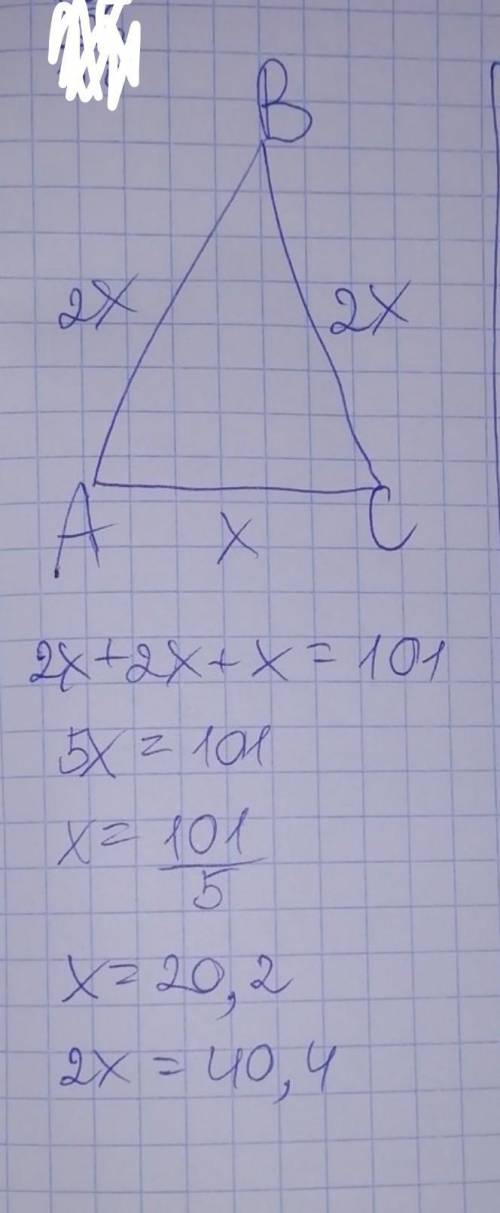 B
2x 2x
A x C
2x+2x+x=101
5x=101
x=101/5
x=20,2
2x=40,4